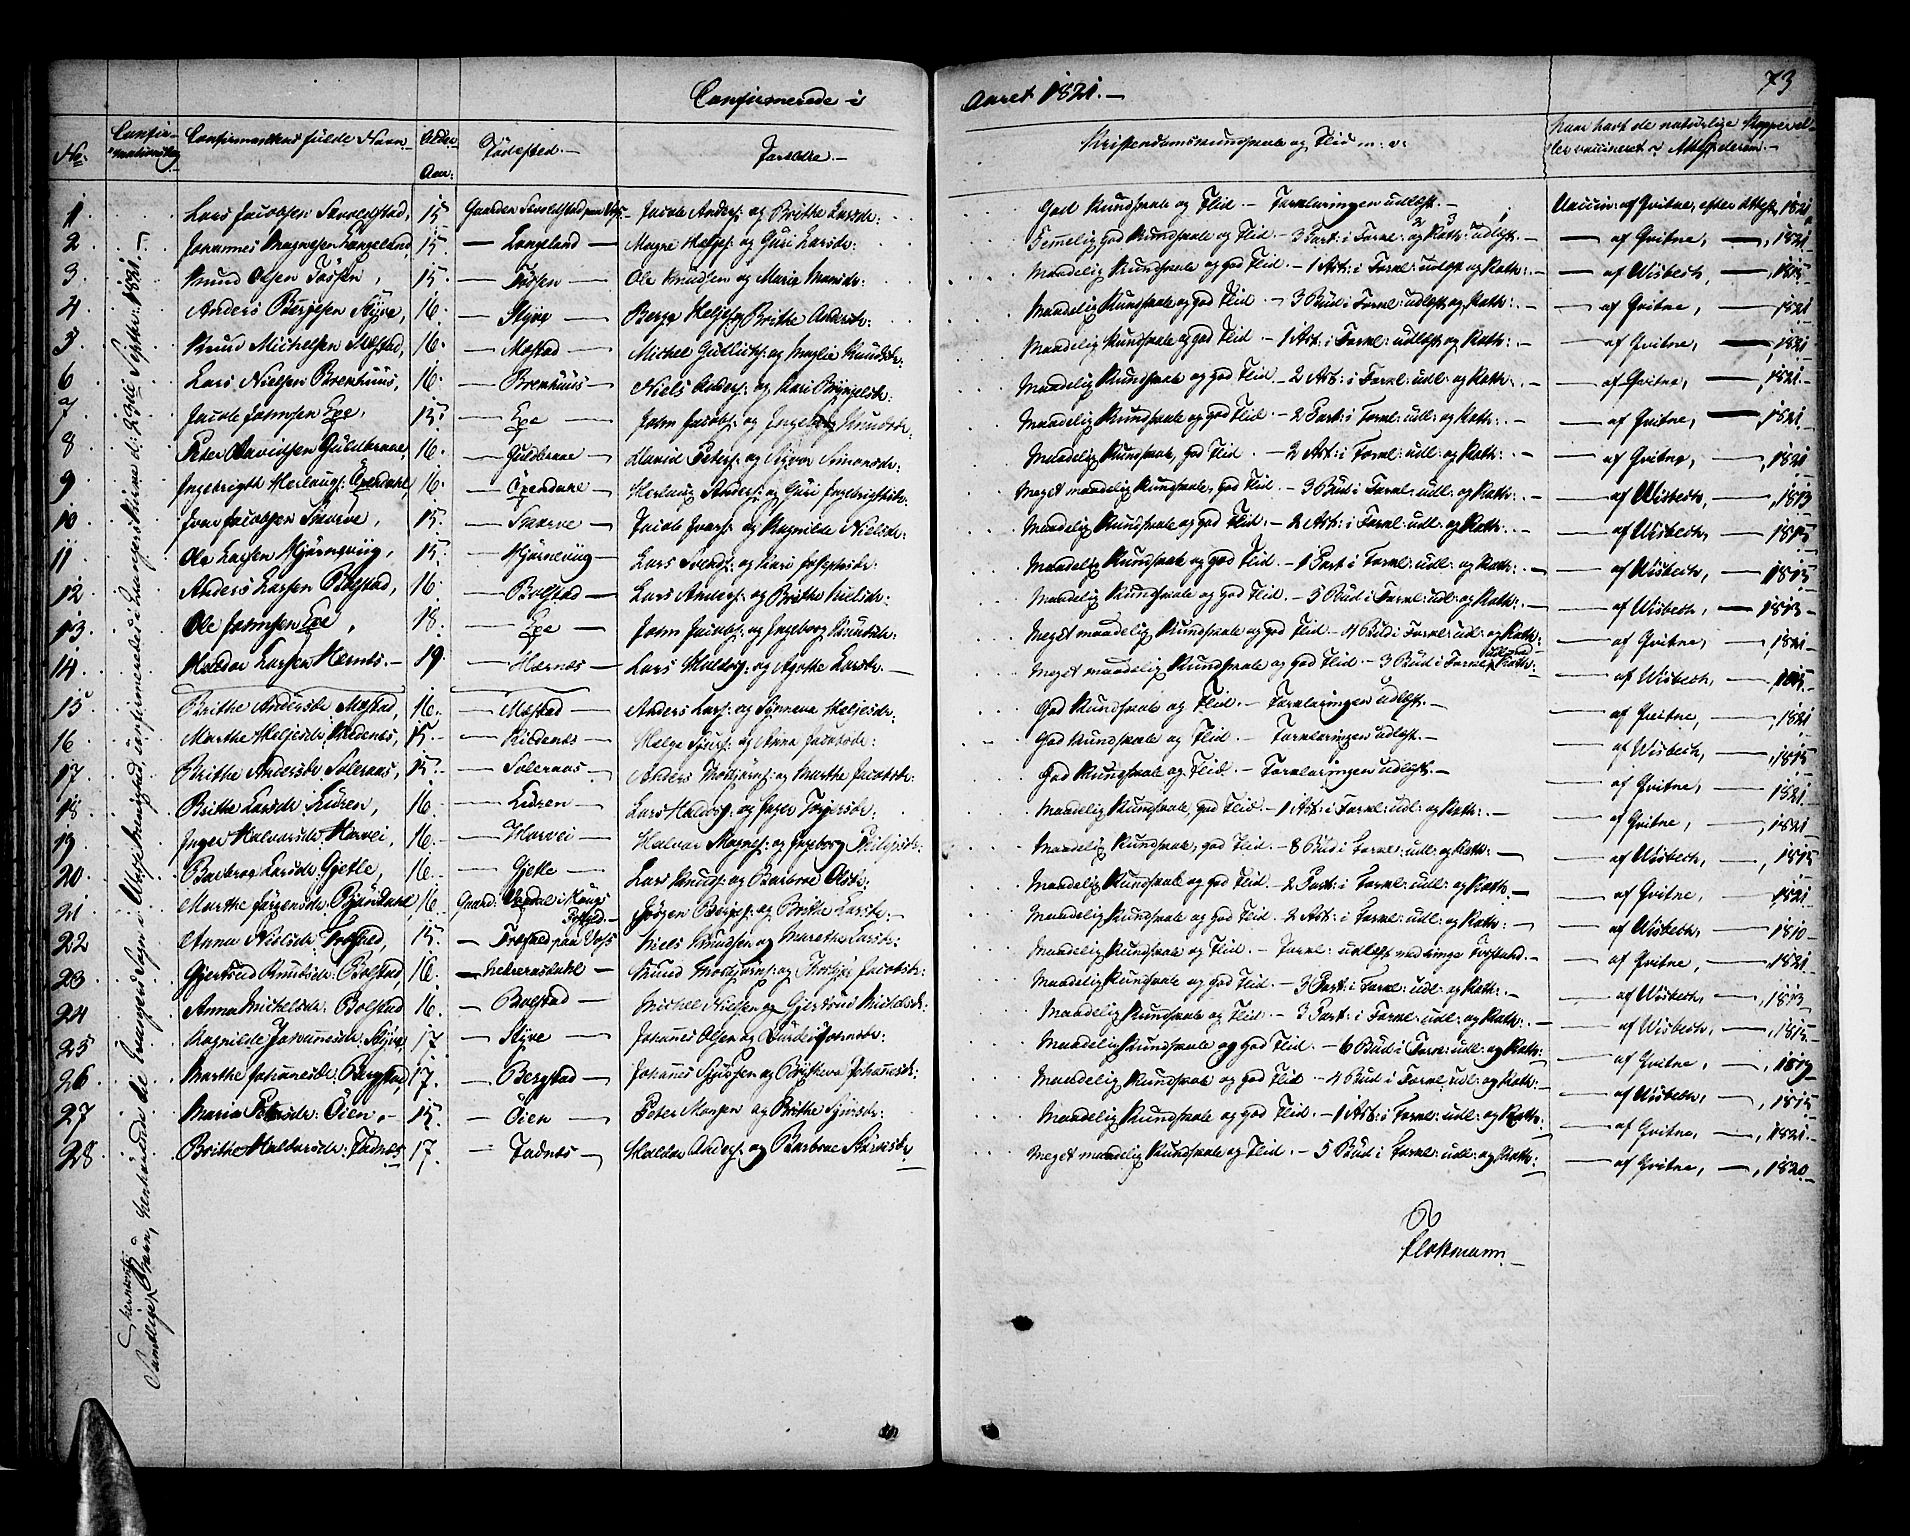 Confirmerede i Aaret 1821.—
73
No: Confirmationsdag Confirmandens fulde Navn Alder Aar: Fødested.— Forældre.— Kristendomskundskab og Flid m: v: har havt de naturlige Kopper el-
ler vaccineret v: Attest derom.—
1. Lars Jacobsen Sævoldstad, 15 Gaarden Sævoldstad paa Vos— Jacob Anders: og Brithe Larsdr: God Kundskab og Flid.— Forklaringen udlæst.— Vaccin: af Qvitne, efter Attest, 1821
2. Johannes Magnesen Langeland, 15 — Langeland — Magne Helges: og Guri Larsdr: Temmelig god Kundskab og Flid.— 3 Part: i Forkl: og Kath: udlæst.— — af Qvitne, —, 1821
3 Knud Olsen 15 — Ole Knudsen og Marie Monsdr: Maadelig Kundskab og god Flid.— 1 Art: i Forkl: udlæst og Kath:— — af Wisbech, —, 1815
4 Anders Børgesen Styve, 16. — Styve — Børge Heljes: og Brithe Andersdr: Maadelig Kundskab og god Flid.— 3 Bud i Forkl: udlæst og Kath:— — af Qvitne, — 1821
5 Knud Michelsen Mæstad, 16. — Mæstad — Michel og Knudsdr: Maadelig Kundskab og god Flid.— 1 Art: i Forkl: udlæst og Kath:— — af Qvitne, —, 1821
6 Lars Nielsen Brekhuus, 16. — Brekhuus — Niels Anders: og Kari Brynjelsdr: Maadelig Kundskab og god Flid.— 2 Art: i Forkl: udl: og Kath:— — af Qvitne, —, 1821.
7 Jacob Johnsen Epe, 15. — Epe — John Jacobs: og Ingeborg Knudsdr: Maadelig Kundskab og god Flid.— 2 Part: i Forkl: udl: og Kath:— — af Qvitne, — 1821.
8 Peter Davidsen Guldbraae, 16. — Guldbraae — David Peters: og Synva Simonsdr: Maadelig Kundskab, god Flid.— 2 Art: i Forkl: udl: og Kath:— — af Qvitne, —, 1821
9 Ingebrigth Herlaugs: Opendahl, 16. — Opendahl — Herlaug Anders: og Guri Ingebrigtsdr: Meget maadelig Kundskab, god Flid.— 3 Bud i Forkl: udl: og Kath:— — af Wisbech, —, 1813
10. Ivar Jacobsen Skorve, 15. — Skorve — Jacob Ivars: og Ragnilde Nielsdr: Maadelig Kundskab og god Flid.— 2 Art: i Forkl: udl: og Kath:— — af Wisbech, — 1815
11 Ole Larsen Hjørnevüg, 15. — Hjørnevüg — Lars Svends: og Kari Maadelig Kundskab og god Flid.— 1 Part i Forkl: udl: og Kath:— — af Wisbech, — 1815
12 Anders Larsen Bolstad, 16. — Bolstad — Lars Anders: og Brithe Nielsdr: Maadelig Kundskab og god Flid.— 5 Bud i Forkl: udl: og Kath:— — af Wisbech, — 1813.
13 Ole Johnsen Epe, 18. — Epe — John Jacobs: og Ingeborg Knudsdr: Meget maadelig Kundskab og god Flid.— 4 Bud i Forkl: udl: og Kath: — af Qvitne, — 1821
14. Haldor Larsen Hærnes.— 19. — Hærnes — Lars Haldors: og Agathe Larsdr: Meget maadelig Kundskab og god Flid.— 3 Bud i Forkl: udlæst og Kath:— — af Wisbech, —, 1815.
15 Brithe Andersdr. Mæstad, 16. — Mæstad — Anders Lars: og Synneva Heljesdr: God Kundskab og Flid.— Forklaringen udlæst.— — af Qvitne, —, 1821
16 Marthe Heljesdr: Kidenæs, 15. — Kidenæs — Helge Sjurs: og Anna Jacobsdr: God Kundskab og Flid.— Forklaringen udlæst.— — af Wisbech, —, 1815
17. Brithe Andersdr: Solernæs, 15. — Solernæs — Anders Thorbjørns: og Marthe Jacobsdr: God Kundskab og Flid.— Forklaringen udlæst.— — af Qvitne, — 1821.
18 Brithe Larsdr: Luren, 16. — Luren — Lars Haldors: og Inger Torgersdr: Maadelig Kundskab, god Flid.— 1 Art: i Forkl: udl: og Kath:— — af Qvitne, —, 1821
19. Inger Halvarsdr: Horvei, 16. — Horvei — Halvar Magnes: og Ingeborg Philipsdr: Maadelig Kundskab, god Flid.— 8 Bud i Forkl: udl: og Kath:— — af Wisbech, —, 1815
20 Barbroe Larsdr: Gjetle, 16. — Gjetle — Lars Knuds: og Barbroe Olsdr: Maadelig Kundskab og god Flid.— 2 Part: i Forkl: udl: og Kath.— — af Qvitne, — 1821
21. Marthe Jørgensdr: 16. Gaard: i — Jørgen Børjes: og Brithe Larsdr:— Maadelig Kundskab og god Flid. 2 Art: i Forkl: udl: og Kath:— — af Wisbech, — 1810
22 Anna Nielsdr: Træfald, 15. — Træfald paa Vos Niels Knudsen og Marthe Larsdr: Maadelig Kundskab og Flid.— Forkl: udlæst med ringe Forstand.— — af Qvitne, — 1821.
23 Gjertrud Knudsdr: Bolstad, 16. — — Knud Thorbjørns: og Jacobsdr: Maadelig Kundskab og god Flid.— 3 Part: i Forkl: udl: og Kath:— — af Wisbech, —, 1813
24 Anna Michelsdr: Bolstad 16. — Bolstad — Michel Nielsen og Gjertrud Nielsdr: Maadelig Kundskab og Flid.— 3 Part: i Forkl: udl: og Kath:— — af Wisbech, —, 1815.
25 Ragnilde Johannesdr: Styve, 17 — Styve — Johannes Olsen og Maadelig Kundskab og god Flid.— 6 Bud i Forkl: udl: og Kath: — af Qvitne, —
26 Marthe Johannesdr: Bergstad, 17. — Bergstad — Johannes Sjursen og Johannesdr: Maadelig Kundskab og god Flid.— 4 Bud i Forkl: udl: og Kath:— — af Wisbech, —, 1815
27 Maria Petersdr: Öien,— 15. — Öien — Peter Monsen og Brithe Sjursdr: Maadelig Kundskab og god Flid.— 1 Art: i Forkl: udl: og Kath: — af Qvitne, —, 1821.
28. Brithe Halvarsdr: Tadnæs 17. — Tadnæs — og Barbroe Meget maadelig Kundskab og Flid.— 5 Bud i Forkl: udl: og Kath: — af Qvitne, —, 1820.
Samtlige Børn, henhørende til Evangers Sogn i Præstegjeld, confirmerede i Evangers Kirke d: 23de Septbr: 1821.